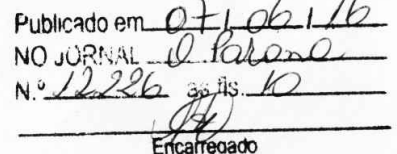 Publicado em 07/06/16
NO JORNAL O Paraná
N.º 12.226 as fls. 10
Encarregado